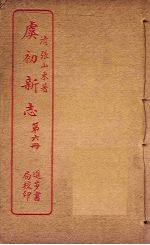 清張山來著
虞初新志
第六冊
進步書
局校印